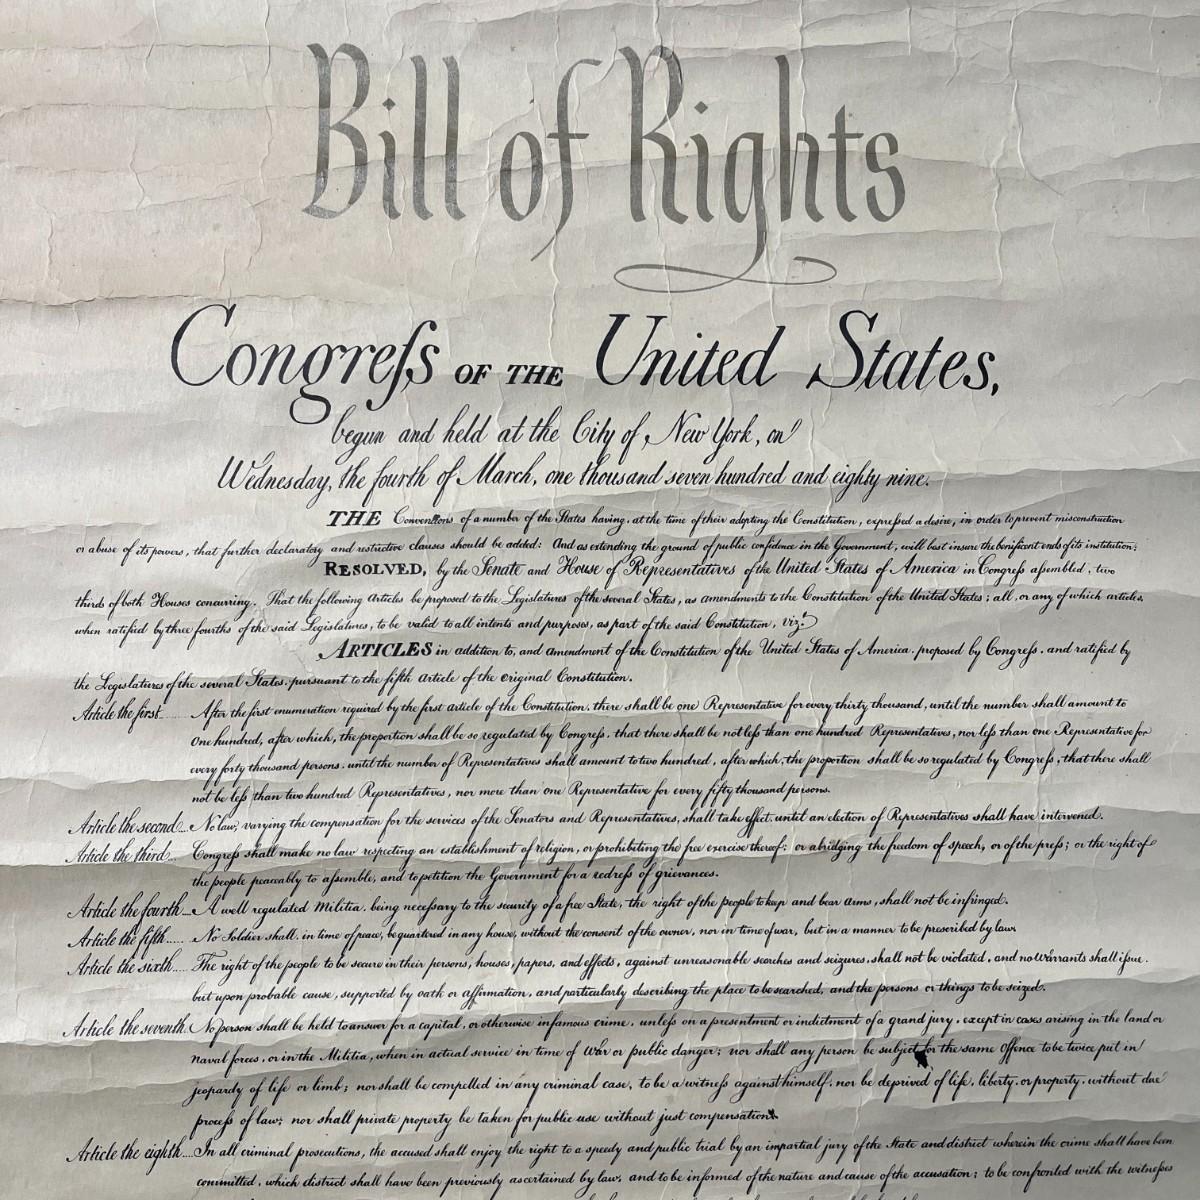 Bill of Rights
Congreſs OF THE United States,
begun and held at the City of New York, on
Wednesday, the fourth of March, one thousand seven hundred and eighty nine.
THE Conventions of a number of the States having, at the time of their adopting the Constitution, expreſsed a desire, in order to prevent misconstruction
or abuse of its powers, that further declaratory and restrictive clauses should be added: And as extending the ground of public confidence in the Government, will best insure the benificent ends of its institution;
RESOLVED, by the Senate and House of Representatives of the United States of America in Congreſs aſsembled, two
thirds of both Houses concurring, That the following Articles be proposed to the Legislatures of the several States, as amendments to the Constitution of the United States; all, or any of which articles,
when ratified by three fourths of the said Legislatures, to be valid to all intents and purposes, as part of the said Constitution, viz.t
ARTICLES in addition to, and amendment of the Constitution of the United States of America, proposed by Congreſs, and ratified by
the Legislatures of the several States, pursuant to the fifth Article of the original Constitution.
Article the first...... After the first enumeration required by the first article of the Constitution, there shall be one Representative for every thirty thousand, until the number shall amount to
One hundred, after which, the proportion shall be so regulated by Congreſs, that there shall be not leſs than one hundred Representatives, nor leſs than one Representative for
every forty thousand persons, until the number of Representatives shall amount to two hundred, after which, the proportion shall be so regulated by Congreſs, that there shall
not be leſs than two hundred Representatives, nor more than one Representative for every fifty thousand persons.
Article the second... No law, varying the compensation for the services of the Senators and Representatives, shall take effect, until an election of Representatives shall have intervened.
Article the third.... Congreſs shall make no law respecting an establishment of religion, or prohibiting the free exercise thereof; or abridging the freedom of speech, or of the preſs; or the right of
the people peaceably to aſsemble, and to petition the Government for a redreſs of grievances.
Article the fourth... A well regulated Militia, being neceſsary to the security of a free State, the right of the people to keep and bear Arms, shall not be infringed.
Article the fifth...... No Soldier shall, in time of peace, be quartered in any house, without the consent of the owner, nor in time of war, but in a manner to be prescribed by law.
Article the sixth..... The right of the people to be secure in their persons, houses, papers, and effects, against unreasonable searches and seizures, shall not be violated, and no Warrants shall iſsue,
but upon probable cause, supported by oath or affirmation, and particularly describing the place to be searched, and the persons or things to be seized.
Article the seventh. No person shall be held to answer for a capital, or otherwise infamous crime, unleſs on a presentment or indictment of a grand jury, except in cases arising in the land or
naval forces, or in the Militia, when in actual service in time of War or public danger; nor shall any person be subject for the same offence to be twice put in
jeopardy of life or limb; nor shall be compelled in any criminal case, to be a witneſs against himself, nor be deprived of life, liberty, or property, without due
proceſs of law; nor shall private property be taken for public use without just compensation.
Article the eighth.... In all criminal prosecutions, the accused shall enjoy the right to a speedy and public trial by an impartial jury of the State and district wherein the crime shall have been
committed, which district shall have been previously ascertained by law, and to be informed of the nature and cause of the accusation; to be confronted with the witneſses